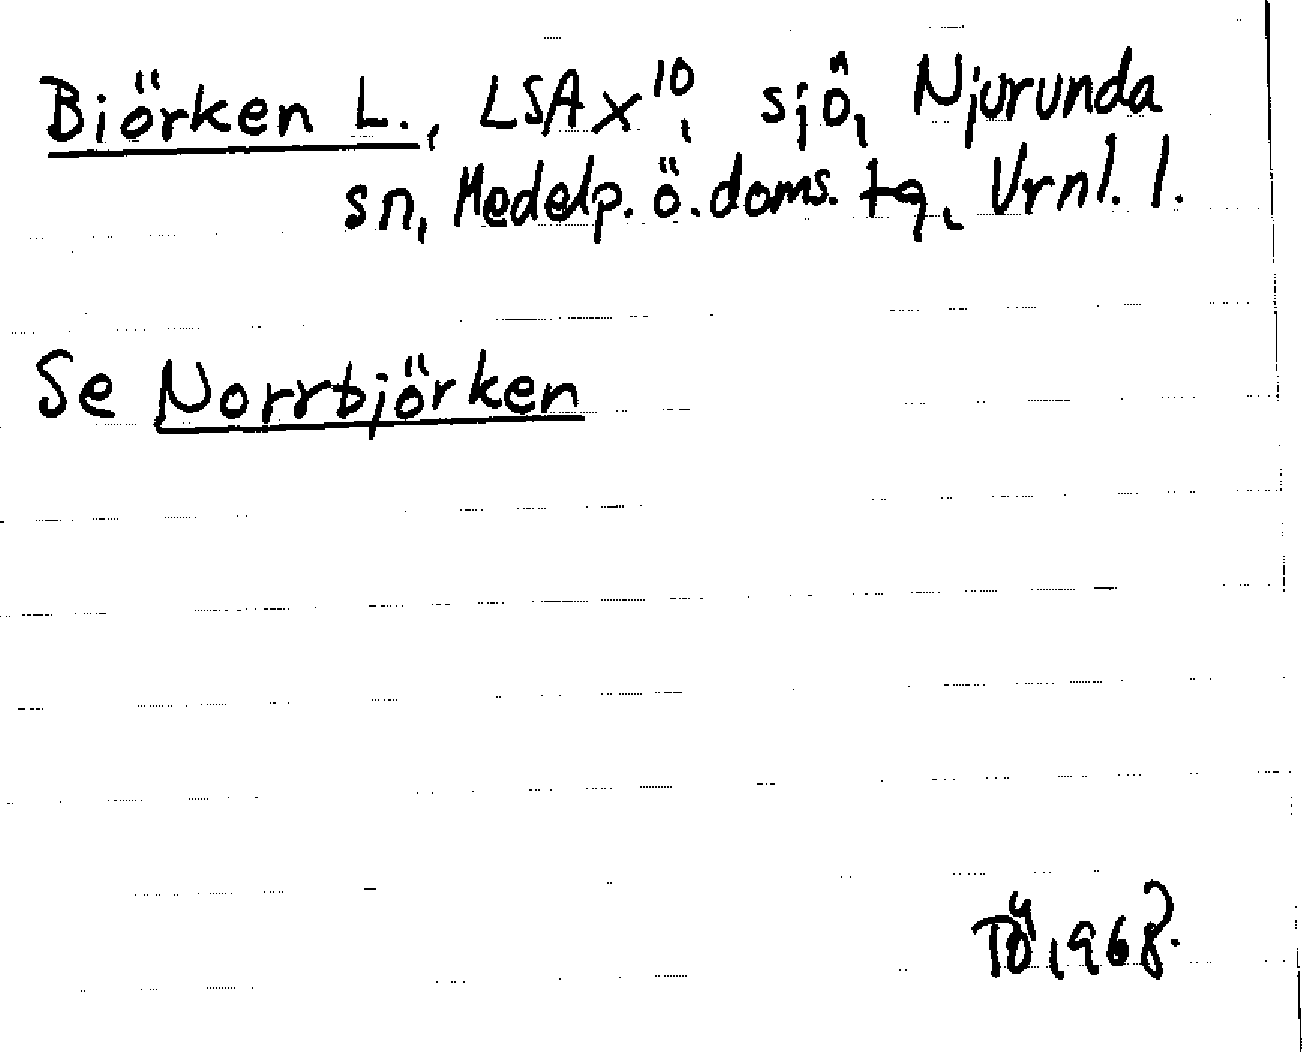 Biörken L., LSA x¹⁰, sjö, Njurunda
sn, Medelp. ö. doms. tg, Vrnl. l.
Se Norrbjörken
TÖ 1968.